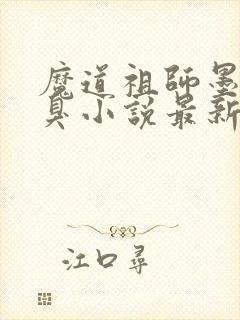 魔道祖師墨
臭小說最新
江口尋